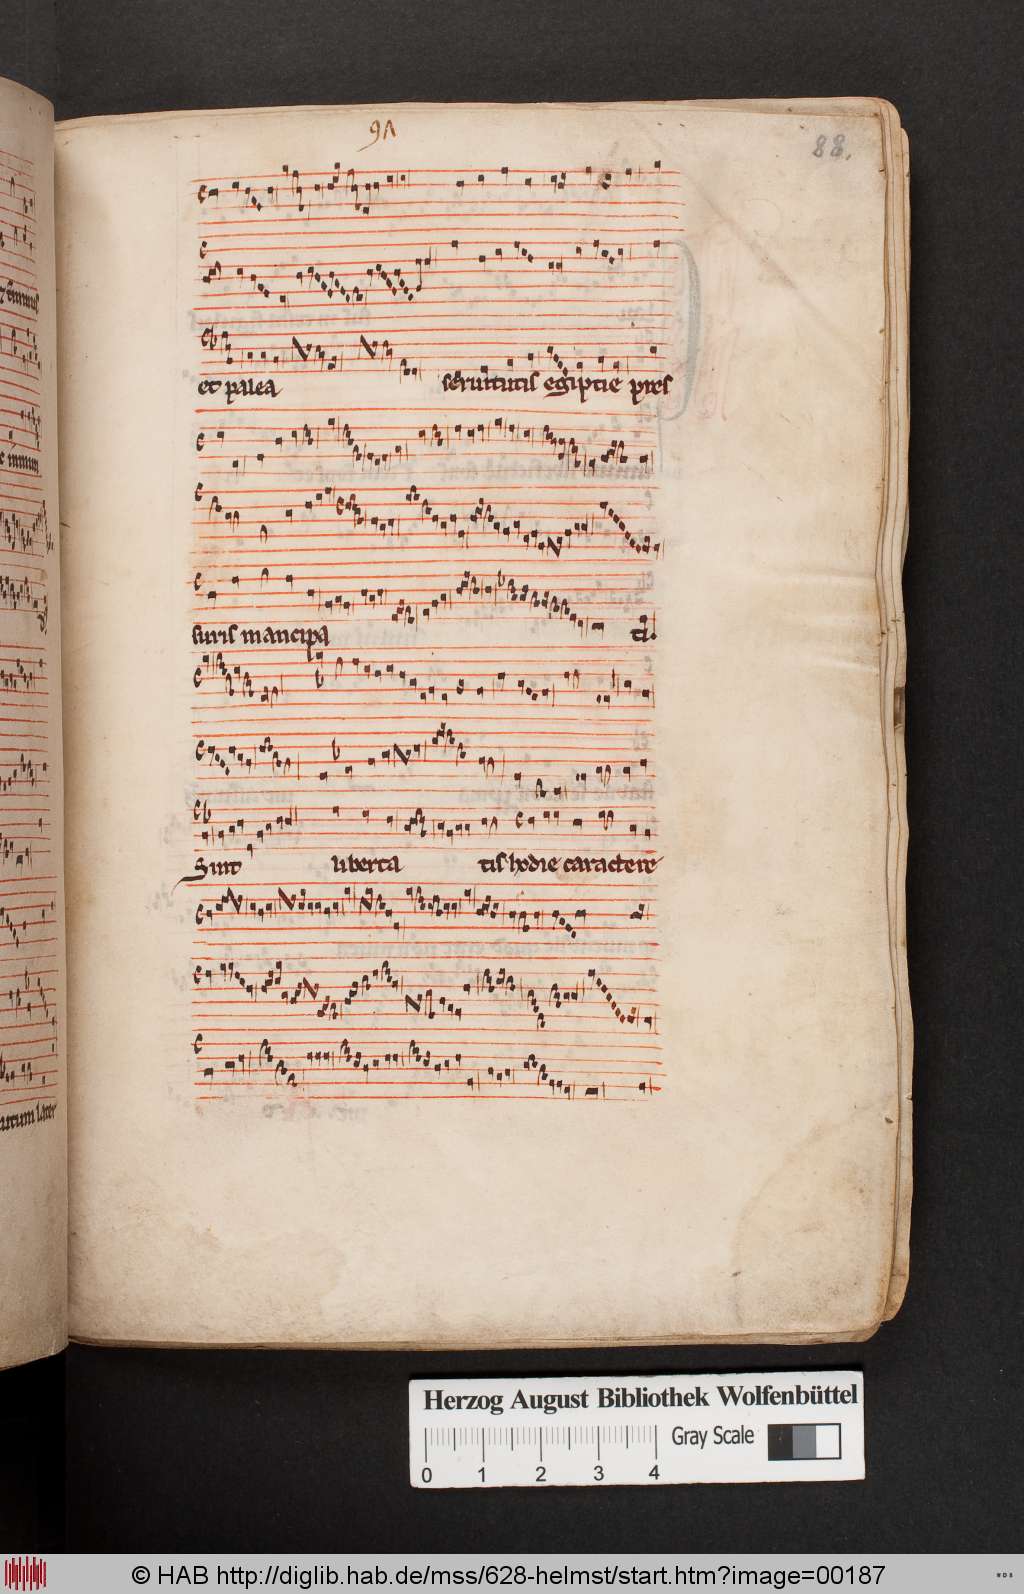 91
88.
et palea seruitutis egiptie pres
suris mancipa ti.
Sint liberta tis hodie caractere
Herzog August Bibliothek Wolfenbüttel
Gray Scale
0 1 2 3 4
© HAB http://diglib.hab.de/mss/628-helmst/start.htm?image=00187